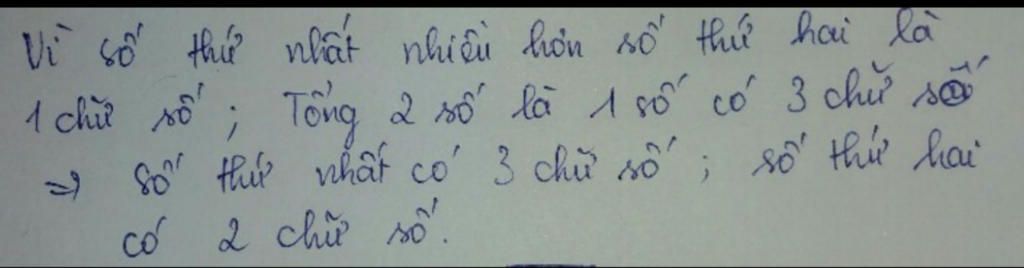 Vì số thứ nhất nhiều hơn số thứ hai là
1 chữ số ; Tổng 2 số là 1 số có 3 chữ số
=> số thứ nhất có 3 chữ số ; số thứ hai
có 2 chữ số.